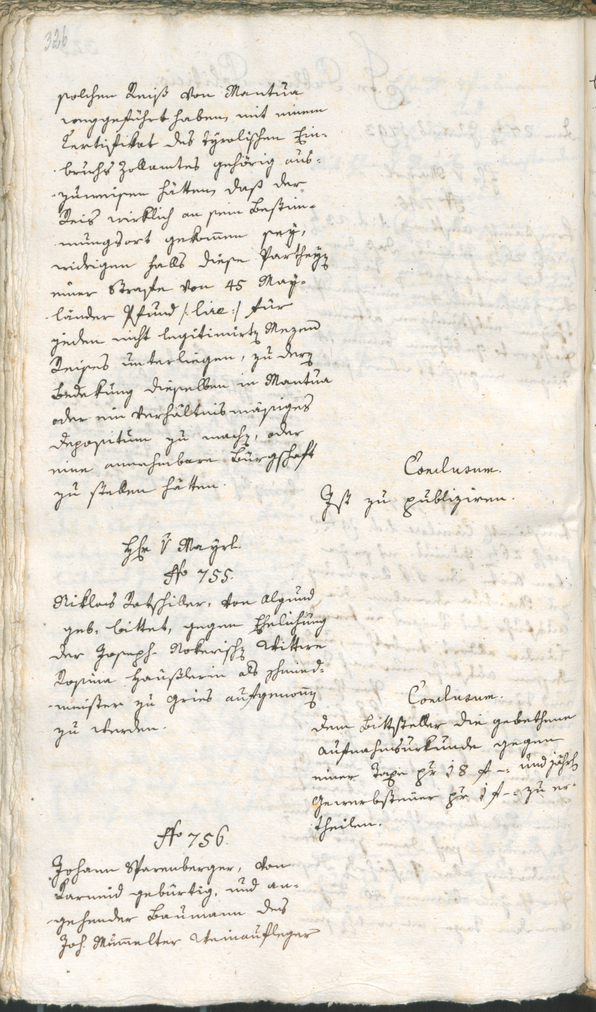 326
solchen Reiß von Mantua
weggeführt haben, mit einem
Certifikat des tyrolischen Ein-
bruchs Zollamtes gehörig aus-
zuweisen hätten, daß der
Reis wirklich an sein Bestim-
mungsort gekommen sey,
widrigen falls diese Partheyen
einer Strafe von 45 May-
länder Pfund /: lire :/ für
jeden nicht legitimirten Mezen
Reises unterliegen, zu deren
Bedekung dieselben in Mantua
oder ein verhältnismäßiges
Depositum zu machen, oder
eine annehmbare Bürgschaft
zu stellen hätten.
Conclusum.
Ist zu publiziren.
Hr. v Mayrl.
No 755.
Niklas Ratschiller, von Algund
geb. bittet, gegen Ehelichung
der Joseph Wittwe
Rosina Häußlerin als Schmid-
meister zu Gries aufgenommen
zu werden.
Conclusum.
Dem Bittsteller die gebethene
Aufnahmsurkunde gegen
einer Taxe pr 18 f - und jährl.
Gewerbsteuer pr 1 f - zu er-
theilen.
No 756.
Johann Sparenberger, von
Karneid gebürtig, und an-
gehender Baumann des
Joh. Mumelter Weinaufleger